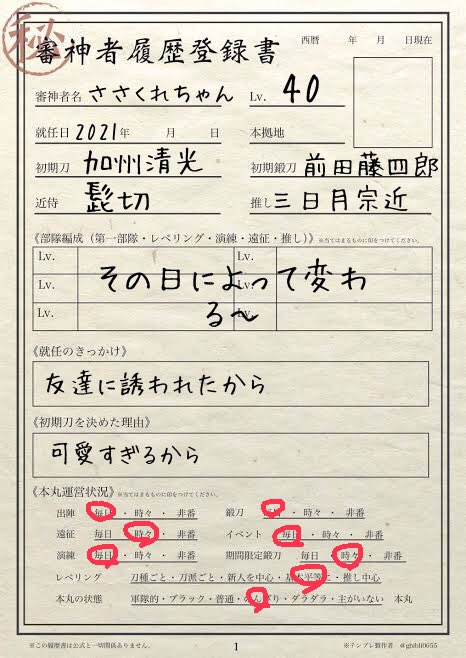 秘
審神者履歴登録書
西暦 年 月 日現在
審神者名 ささくれちゃん Lv. 40
就任日 2021年 月 日 本拠地
初期刀 加州清光 初期鍛刀 前田藤四郎
近侍 髭切 推し 三日月宗近
《部隊編成（第一部隊・レベリング・演練・遠征・推し）》※当てはまるものに印をつけてください。
Lv. Lv.
Lv. Lv.
Lv. Lv.
その日によって変わ
る〜
《就任のきっかけ》
友達に誘われたから
《初期刀を決めた理由》
可愛すぎるから
《本丸運営状況》※当てはまるものに印をつけてください。
出陣 毎日・時々・非番 鍛刀 毎日・時々・非番
遠征 毎日・時々・非番 イベント 毎日・時々・非番
演練 毎日・時々・非番 期間限定鍛刀 毎日・時々・非番
レベリング 刀種ごと・刀派ごと・新人を中心・基本平等に・推し中心
本丸の状態 軍隊的・ブラック・普通・のんびり・ダラダラ・主がいない 本丸
※この履歴書は公式と一切関係ありません。 1 ※テンプレ製作者 @ghibli0655